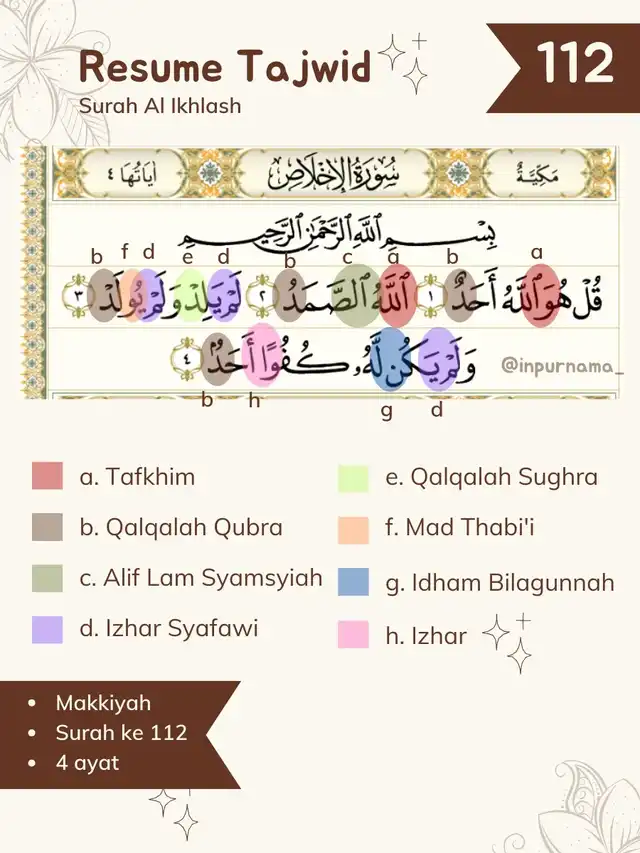 Resume Tajwid
112
Surah Al Ikhlash
مَكِّيَّةٌ سُوْرَةُ الْإِخْلَاصِ اٰيَاتُهَا ٤
بِسْمِ اللّٰهِ الرَّحْمٰنِ الرَّحِيْمِ
b f d e d b c a b a
قُلْ هُوَ اللّٰهُ أَحَدٌ ١ اَللّٰهُ الصَّمَدُ ٢ لَمْ يَلِدْ وَلَمْ يُوْلَدْ ٣
وَلَمْ يَكُنْ لَّهُ كُفُوًا أَحَدٌ ٤
@inpurnama_
b h g d
a. Tafkhim
b. Qalqalah Qubra
c. Alif Lam Syamsyiah
d. Izhar Syafawi
e. Qalqalah Sughra
f. Mad Thabi'i
g. Idham Bilagunnah
h. Izhar
• Makkiyah
• Surah ke 112
• 4 ayat